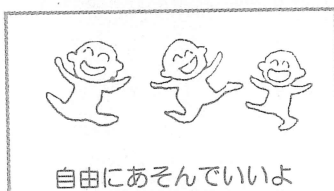 自由にあそんでいいよ